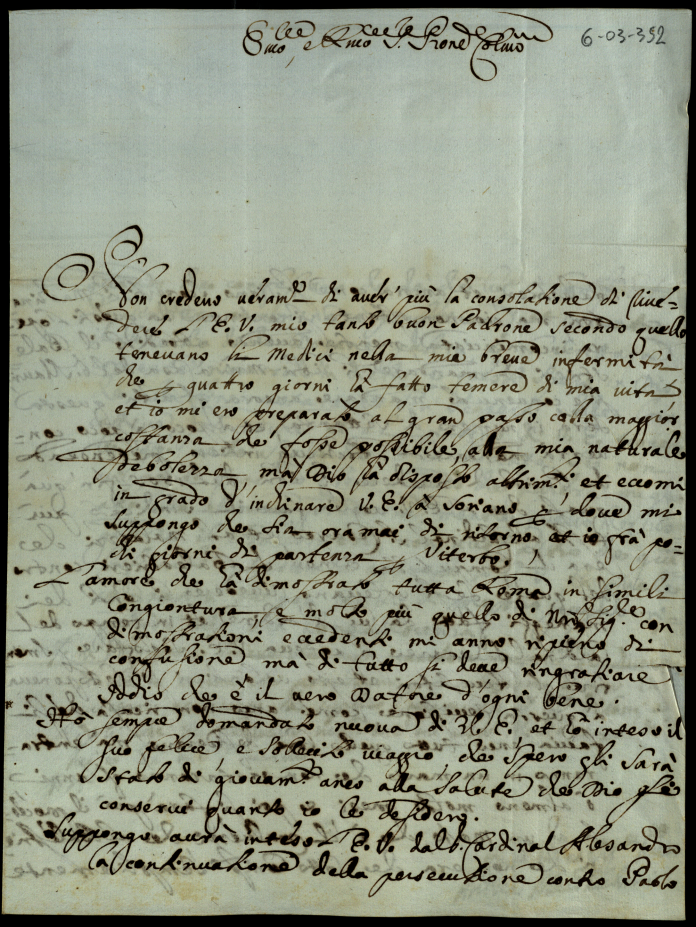 6-03-392
Em.o, e Rmo S. Prone Colmo
Non credevo veram.te di aver' più la consolatione di rive-
dere l'E. V. mio tanto buon Padrone secondo quello
tenevano li Medici nella mia breve infermità
che p quattro giorni hà fatto temere di mia vita
et io mi ero preparato al gran passo colla maggior
costanza che fosse possibile alla mia naturale
debolezza mà Dio hà disposto altrim.ti et eccomi
in grado d'inchinare V. E. à Soriano p dove mi
suppongo che sia oramai di ritorno et io frà po-
chi giorni di partenza p Viterbo.
L'amore che hà dimostrato tutta Roma in simili
congiontura, e molto più quello di Nro Sig.re con
dimostrationi eccedenti mi anno ripieno di
confusione mà di tutto si deve ringratiare
Iddio che è il vero Datore d'ogni bene.
Hò sempre domandato nuova di V. E. et hò inteso il
suo felice e sollecito viaggio che spero gli sarà
stato di giovam.to anco alla salute che Dio gle
conservi quanto io le desidero.
Suppongo aurà inteso l'E. V. dal S. Cardinal Alesandro
la continuatione della persecutione contro Paolo